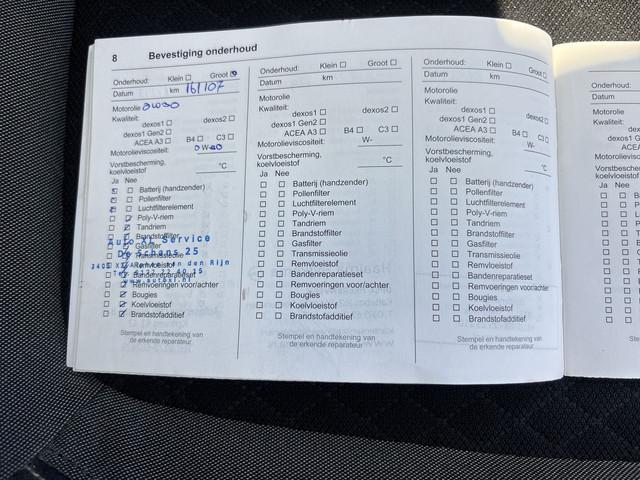 8 Bevestiging onderhoud
Onderhoud: Klein ☐ Groot ☒
Datum km 161107
Motorolie 0W30
Kwaliteit:
dexos1 ☐ dexos2 ☐
dexos1 Gen2 ☐
ACEA A3 ☐ B4 ☐ C3 ☐
Motorolieviscositeit: 0W-
Vorstbescherming, koelvloeistof °C
Ja Nee
Batterij (handzender)
Pollenfilter
Luchtfilterelement
Poly-V-riem
Tandriem
Brandstoffilter
Gasfilter
Transmissieolie
Remvloeistof
Bandenreparatieset
Remvoeringen voor/achter
Bougies
Koelvloeistof
Brandstofadditief
Auto XL Service
De Schans 25
Stempel en handtekening van
de erkende reparateur
Onderhoud: Klein ☐ Groot ☐
Datum km
Motorolie
Kwaliteit:
dexos1 ☐ dexos2 ☐
dexos1 Gen2 ☐
ACEA A3 ☐ B4 ☐ C3 ☐
Motorolieviscositeit: W-
Vorstbescherming,
koelvloeistof °C
Ja Nee
Batterij (handzender)
Pollenfilter
Luchtfilterelement
Poly-V-riem
Tandriem
Brandstoffilter
Gasfilter
Transmissieolie
Remvloeistof
Bandenreparatieset
Remvoeringen voor/achter
Bougies
Koelvloeistof
Brandstofadditief
Stempel en handtekening van
de erkende reparateur
Onderhoud: Klein ☐ Groot ☐
Datum km
Motorolie
Kwaliteit:
dexos1 ☐ dexos2 ☐
dexos1 Gen2 ☐
ACEA A3 ☐ B4 ☐ C3 ☐
Motorolieviscositeit: W-
Vorstbescherming,
koelvloeistof °C
Ja Nee
Batterij (handzender)
Pollenfilter
Luchtfilterelement
Poly-V-riem
Tandriem
Brandstoffilter
Gasfilter
Transmissieolie
Remvloeistof
Bandenreparatieset
Remvoeringen voor/achter
Bougies
Koelvloeistof
Brandstofadditief
Stempel en handtekening van
de erkende reparateur
Onderhoud:
Datum
Motorolie
Kwaliteit:
Motorolieviscositeit:
Vorstbescherming,
koelvloeistof
Ja Nee